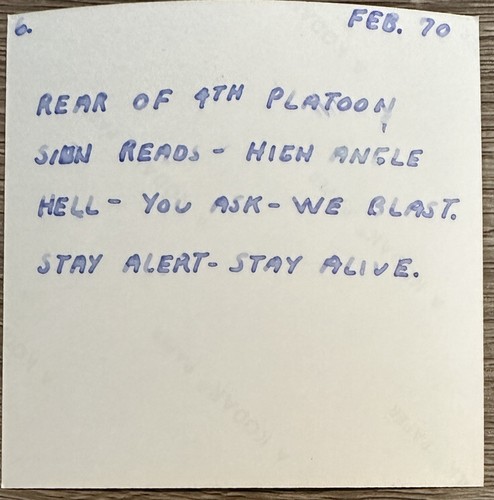 6. FEB. 70
REAR OF 4TH PLATOON
SIGN READS - HIGH ANGLE
HELL - YOU ASK - WE BLAST.
STAY ALERT - STAY ALIVE.